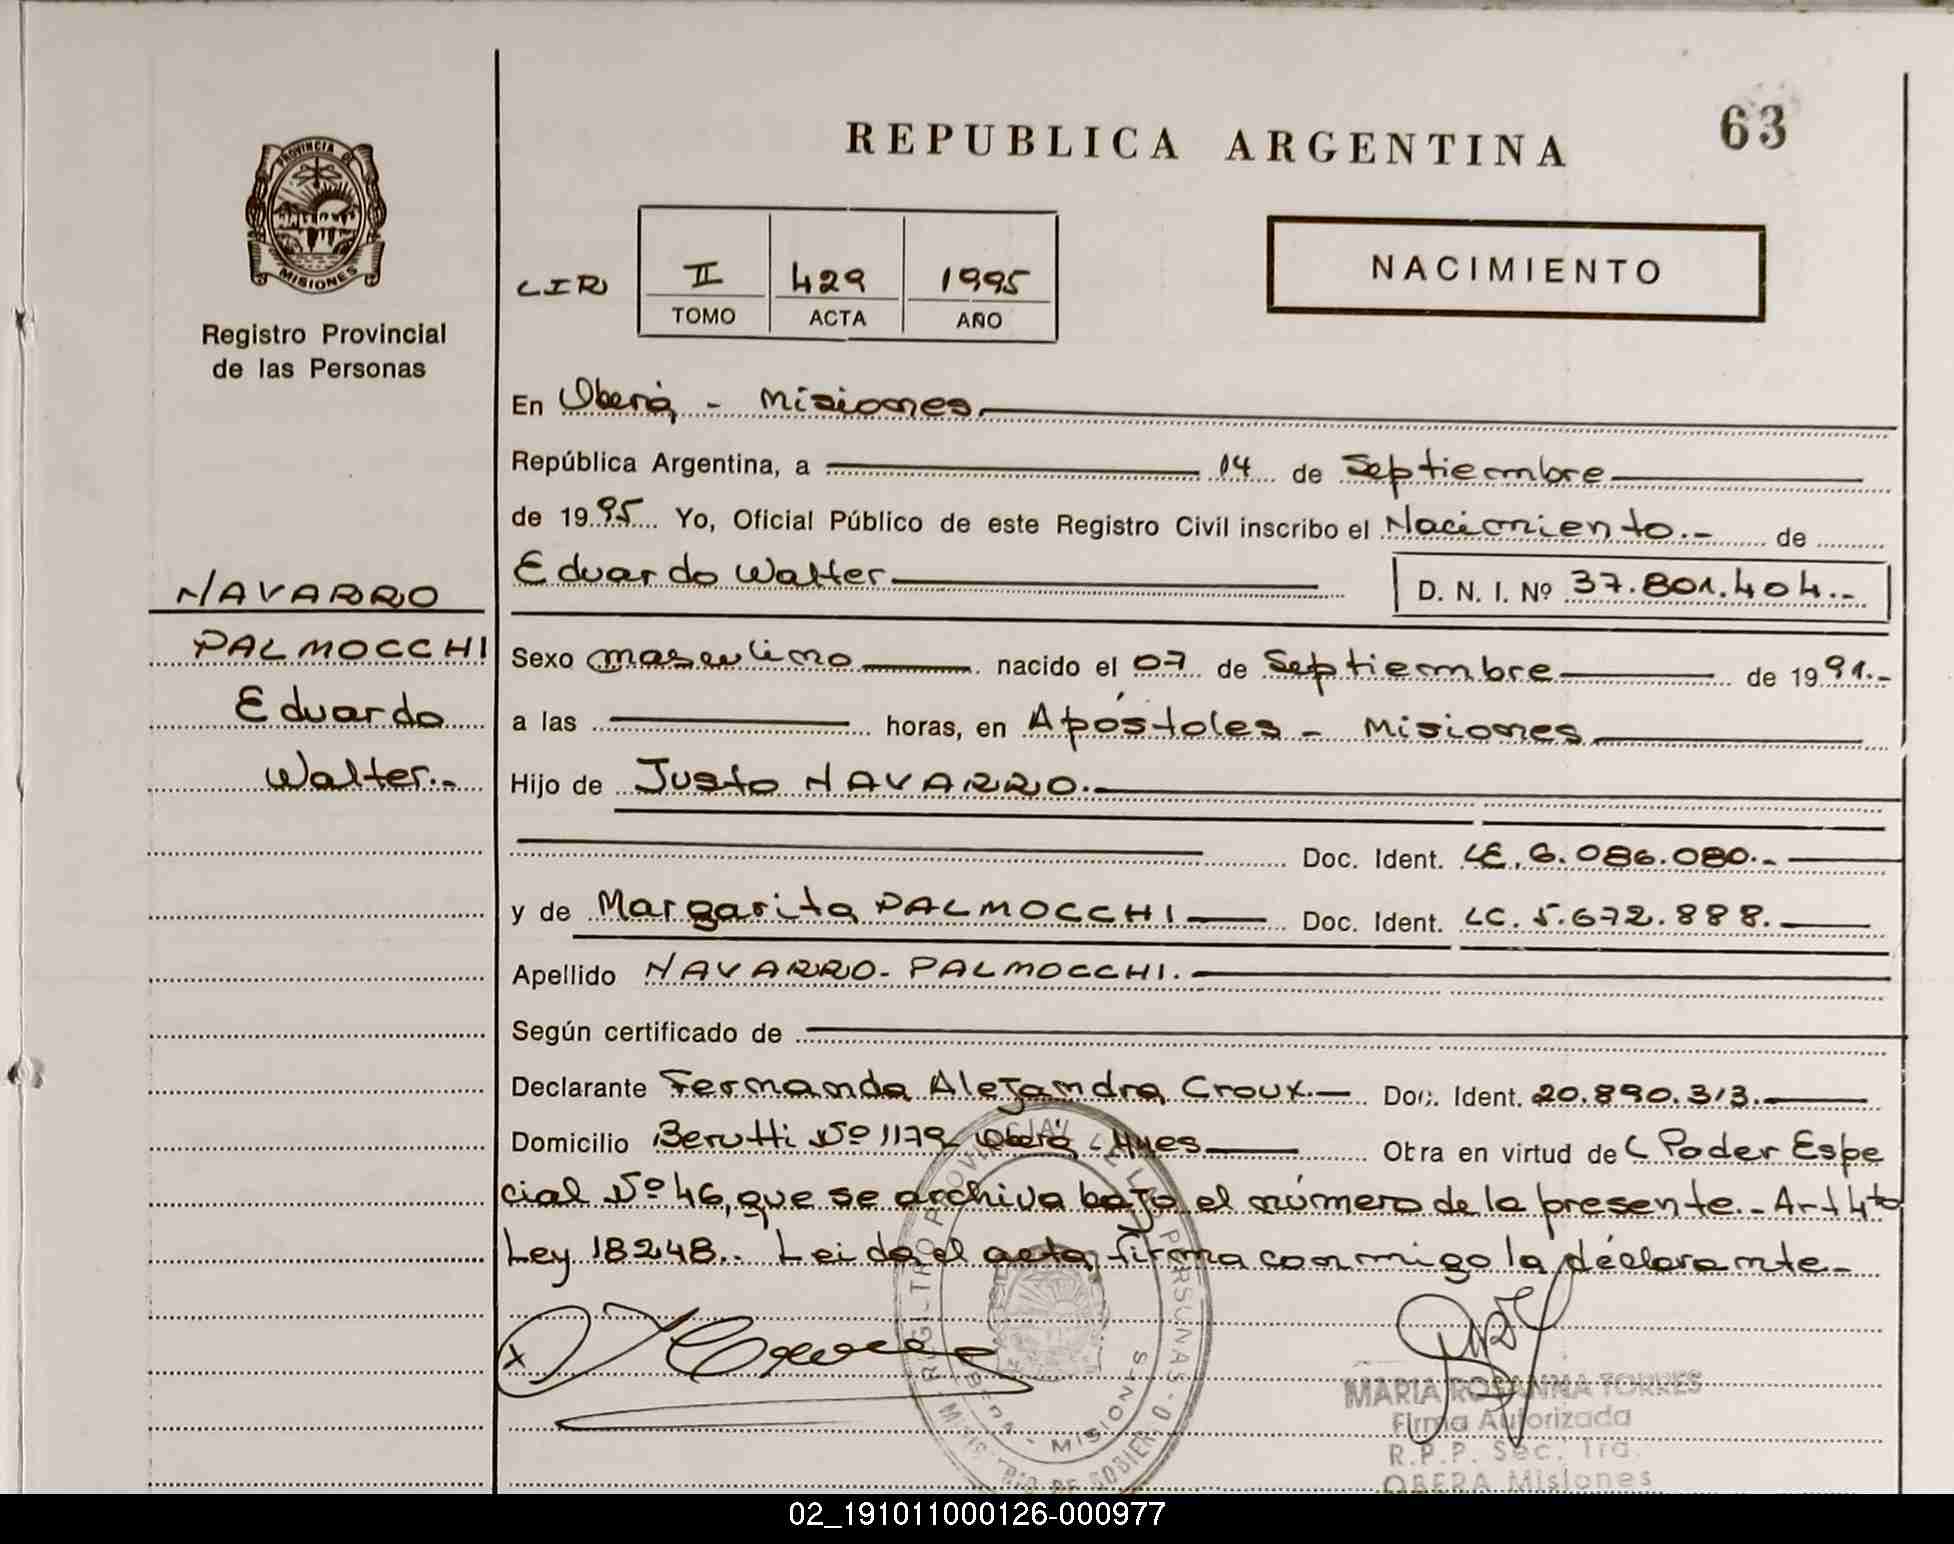 REPUBLICA ARGENTINA
63
PROVINCIA DE
MISIONES
Registro Provincial
de las Personas
CIR
II 429 1995
TOMO ACTA AÑO
NACIMIENTO
En Oberá - Misiones
República Argentina, a 14 de Septiembre
de 1995 Yo, Oficial Público de este Registro Civil inscribo el Nacimiento.- de
Eduardo Walter D. N. I. Nº 37.801.404.-
NAVARRO
PALMOCCHI
Eduardo
Walter.-
Sexo masculino nacido el 07 de Septiembre de 1991.-
a las horas, en Apóstoles - Misiones
Hijo de Justo NAVARRO.
Doc. Ident. LE. 6.086.080.-
y de Margarita PALMOCCHI Doc. Ident. LC. 5.672.888.
Apellido NAVARRO- PALMOCCHI.
Según certificado de
Declarante Fernanda Alejandra Croux.- Doc. Ident. 20.890.313.
Domicilio Berutti Nº 1179 Oberá - Mnes Obra en virtud de Poder Espe
cial Nº 46, que se archiva bajo el número de la presente.- Art 4to
Ley 18248.. Leida el acta, firma conmigo la declarante-
MARIA ROSANNA TORRES
Firma Autorizada
R.P.P. Sec. 1ra.
OBERA Misiones
02_191011000126-000977